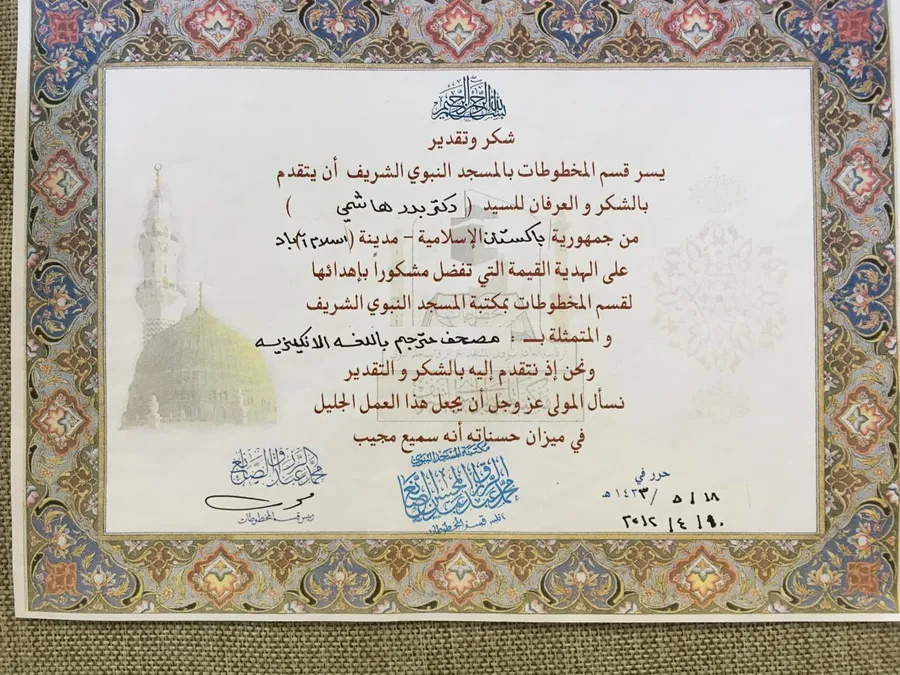 بسم الله الرحمن الرحيم
شكر وتقدير
يسر قسم المخطوطات بالمسجد النبوي الشريف أن يتقدم
بالشكر و العرفان للسيد ( دكتر بدر هاشمي )
من جمهورية باكستان الإسلامية - مدينة (اسلام آباد
على الهدية القيمة التي تفضل مشكوراً بإهدائها
لقسم المخطوطات بمكتبة المسجد النبوي الشريف
و المتمثلة بـ : مصحف مترجم باللغه الانكليزيه
ونحن إذ نتقدم إليه بالشكر و التقدير
نسأل المولى عز وجل أن يجعل هذا العمل الجليل
في ميزان حسناته أنه سميع مجيب
مكتبة المسجد النبوي
محمد عبدالرزاق الصانع
رئيس قسم المخطوطات
حرر في
١٨ / ٥ / ١٤٣٣ هـ
٢٠١٢ / ٤ / ١٠